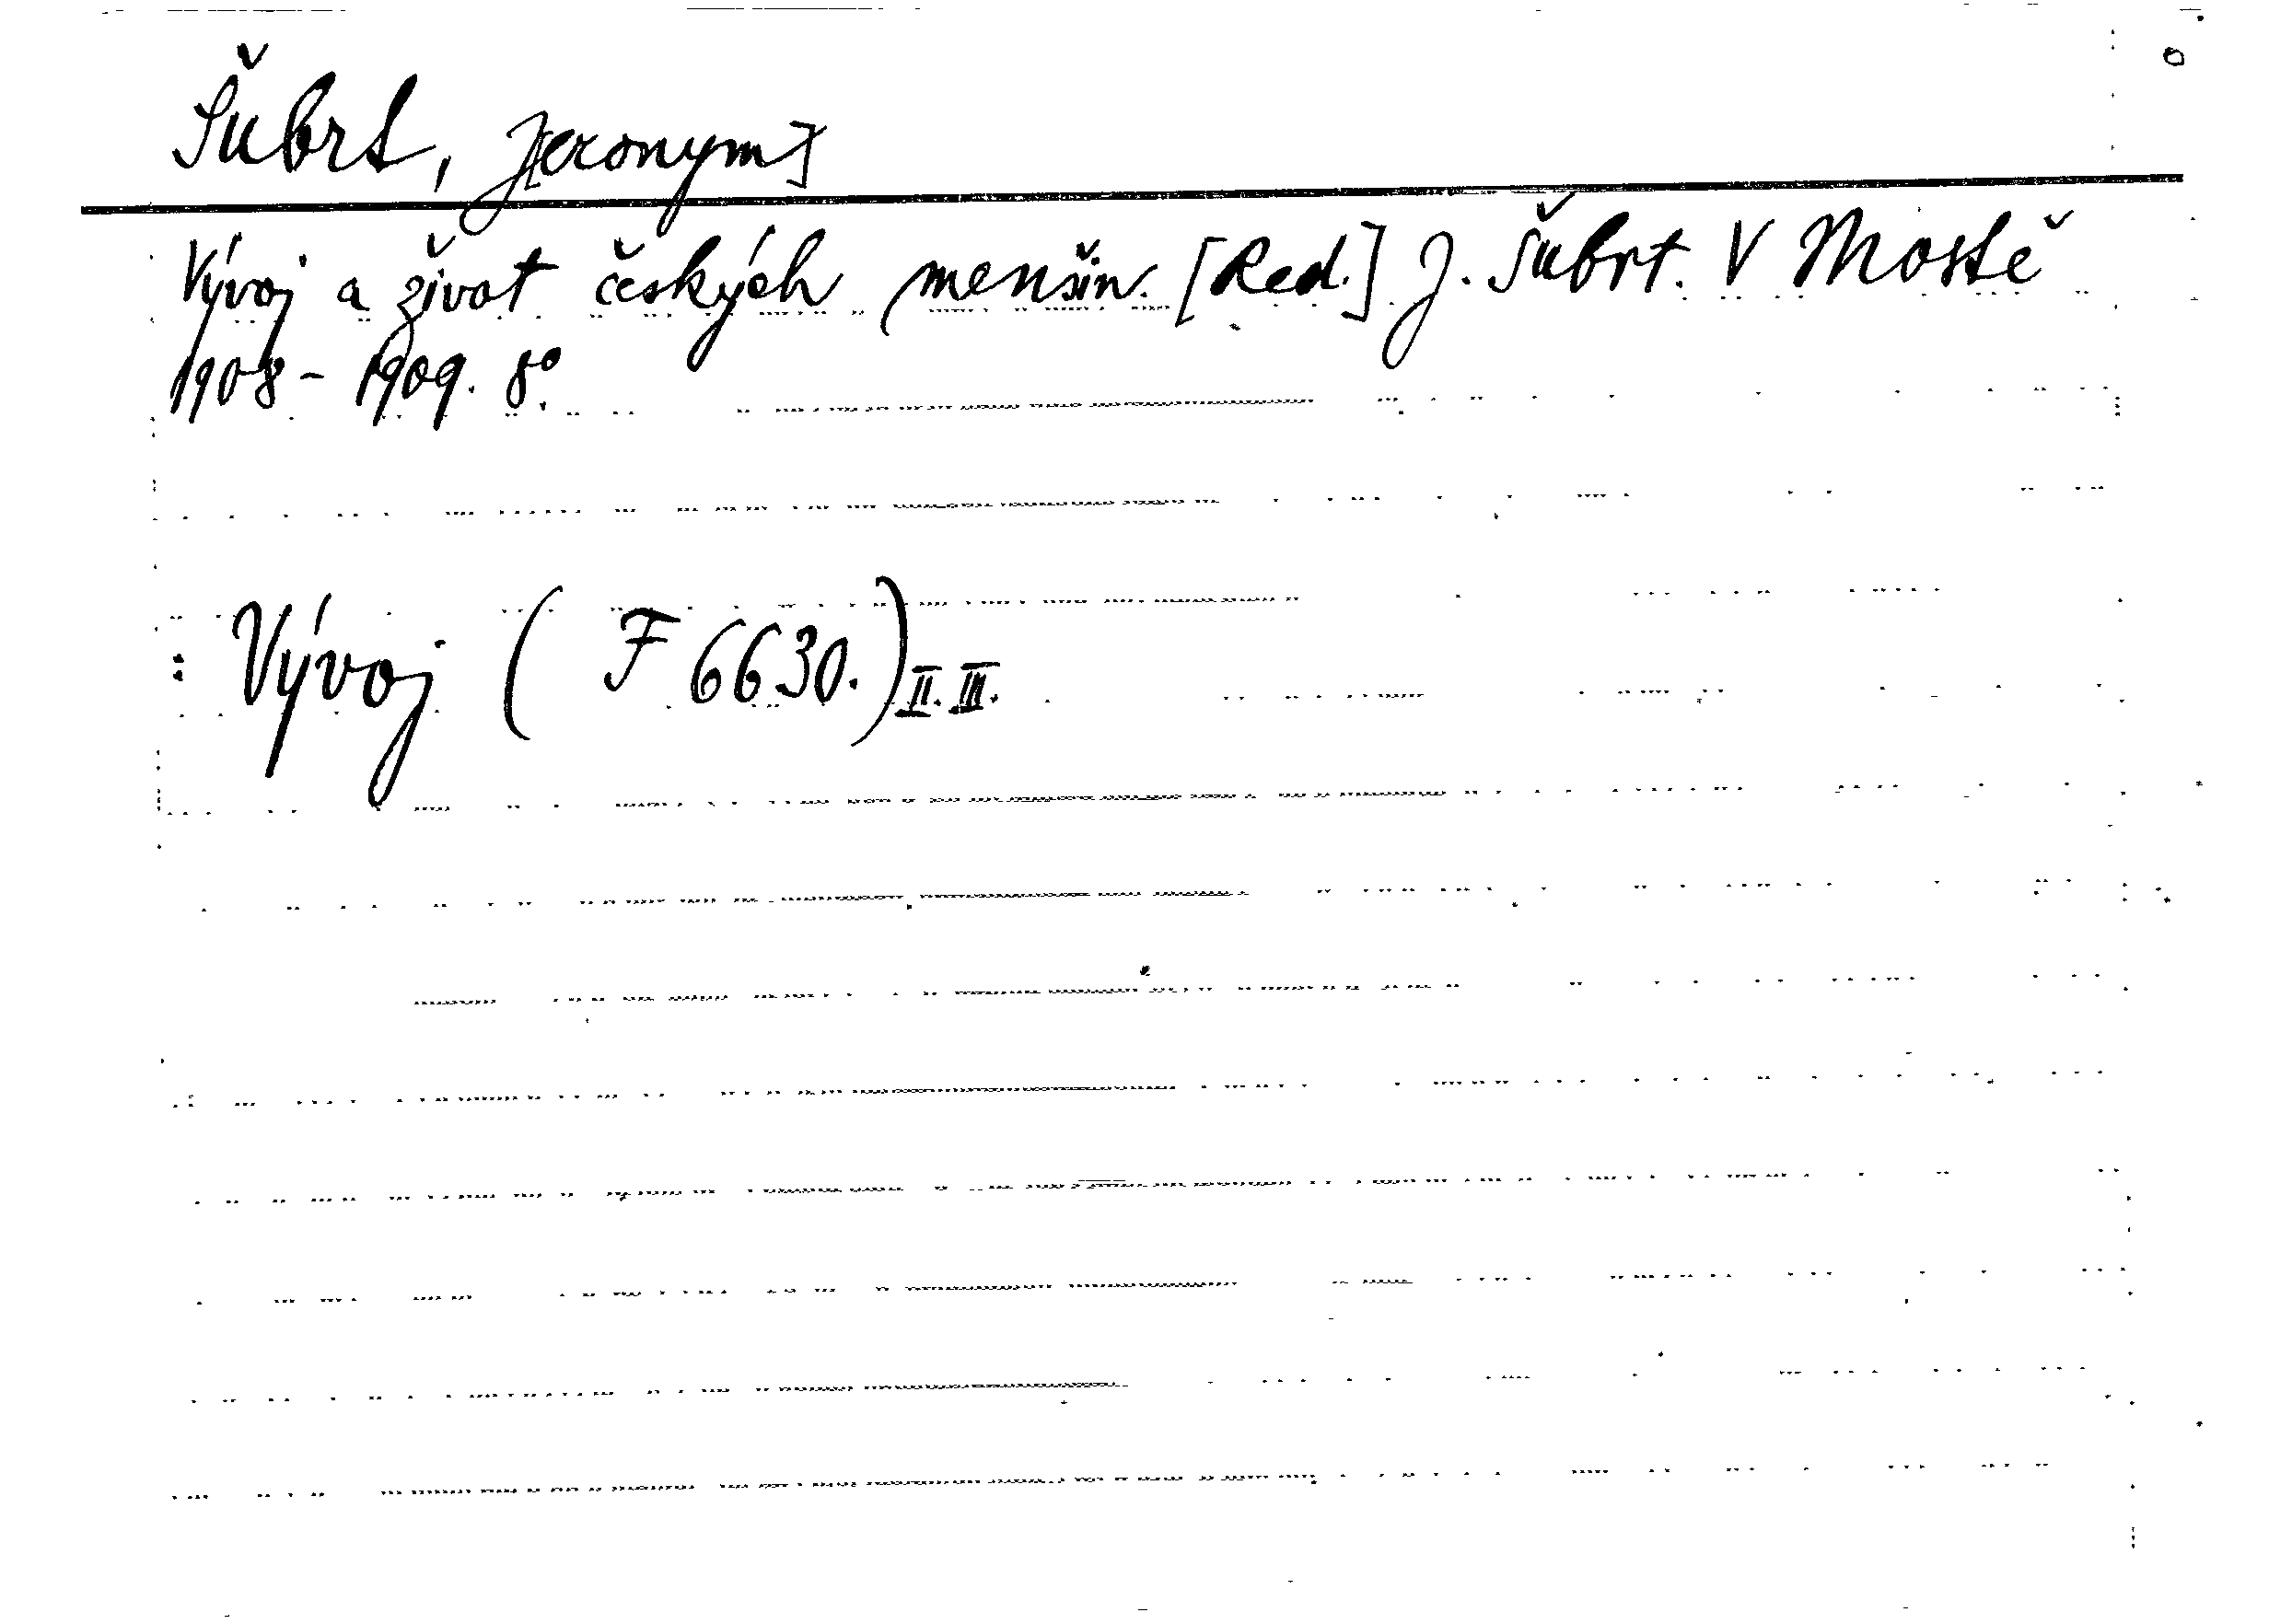 Šubrt, J[eronym]
Vývoj a život českých menšin. [Red.] J. Šubrt. V Mostě
1908-1909. 8°.
: Vývoj (F 6630.) II. III.